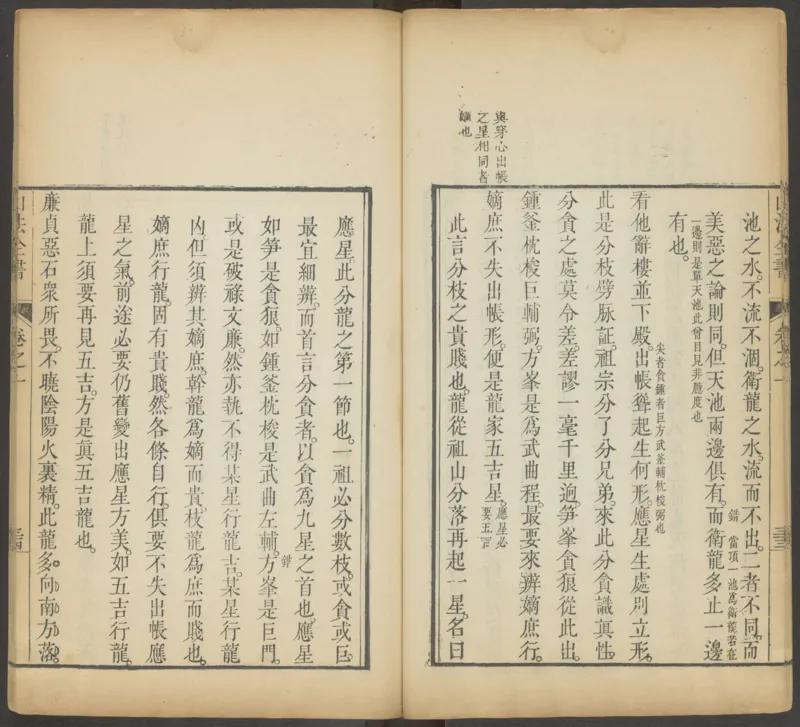 與穿心出帳
之星相同者
嫡也
山法全書
池之水。不流不涸。衛龍之水。流而不出。二者不同。而
錯 當頂一池爲衛龍若在
美惡之論則同。但天池兩邊俱有。而衛龍多止一邊
一邊則是單天池此曾目見非臆度也
有也。
尖者貪鍾者巨方武釜輔枕梭弼也
看他辭樓並下殿。出帳聳起生何形。應星生處別立形。
此是分枝劈脉証。祖宗分了分兄弟。來此分貪識眞性。
分貪之處莫令差。差謬一毫千里逈。笋峯貪狼從此出。
鍾釜枕梭巨輔弼。方峯是爲武曲程。最要來辨嫡庶行。
嫡庶不失出帳形。便是龍家五吉星。應星必
要五吉
此言分枝之貴賤也。龍從祖山分落再起一星。名曰
應星。此分龍之第一節也。一祖必分數枝。或貪或巨。
最宜細辨。而首言分貪者。以貪爲九星之首也。應星
如笋是貪狼。如鍾釜枕梭是武曲左輔。方峯是巨門。
錯
或是破祿文廉。然亦執不得某星行龍吉。某星行龍
凶。但須辨其嫡庶。幹龍爲嫡而貴。枝龍爲庶而賤也。
嫡庶行龍。固有貴賤。然各條自行。俱要不失出帳應
星之氣。前途必要仍舊變出應星方美。如五吉行龍。
龍上須要再見五吉。方是眞五吉龍也。
廉貞惡石衆所畏。不曉陰陽火裏精。此龍多向南方落。
山法全書
卷之十
三四